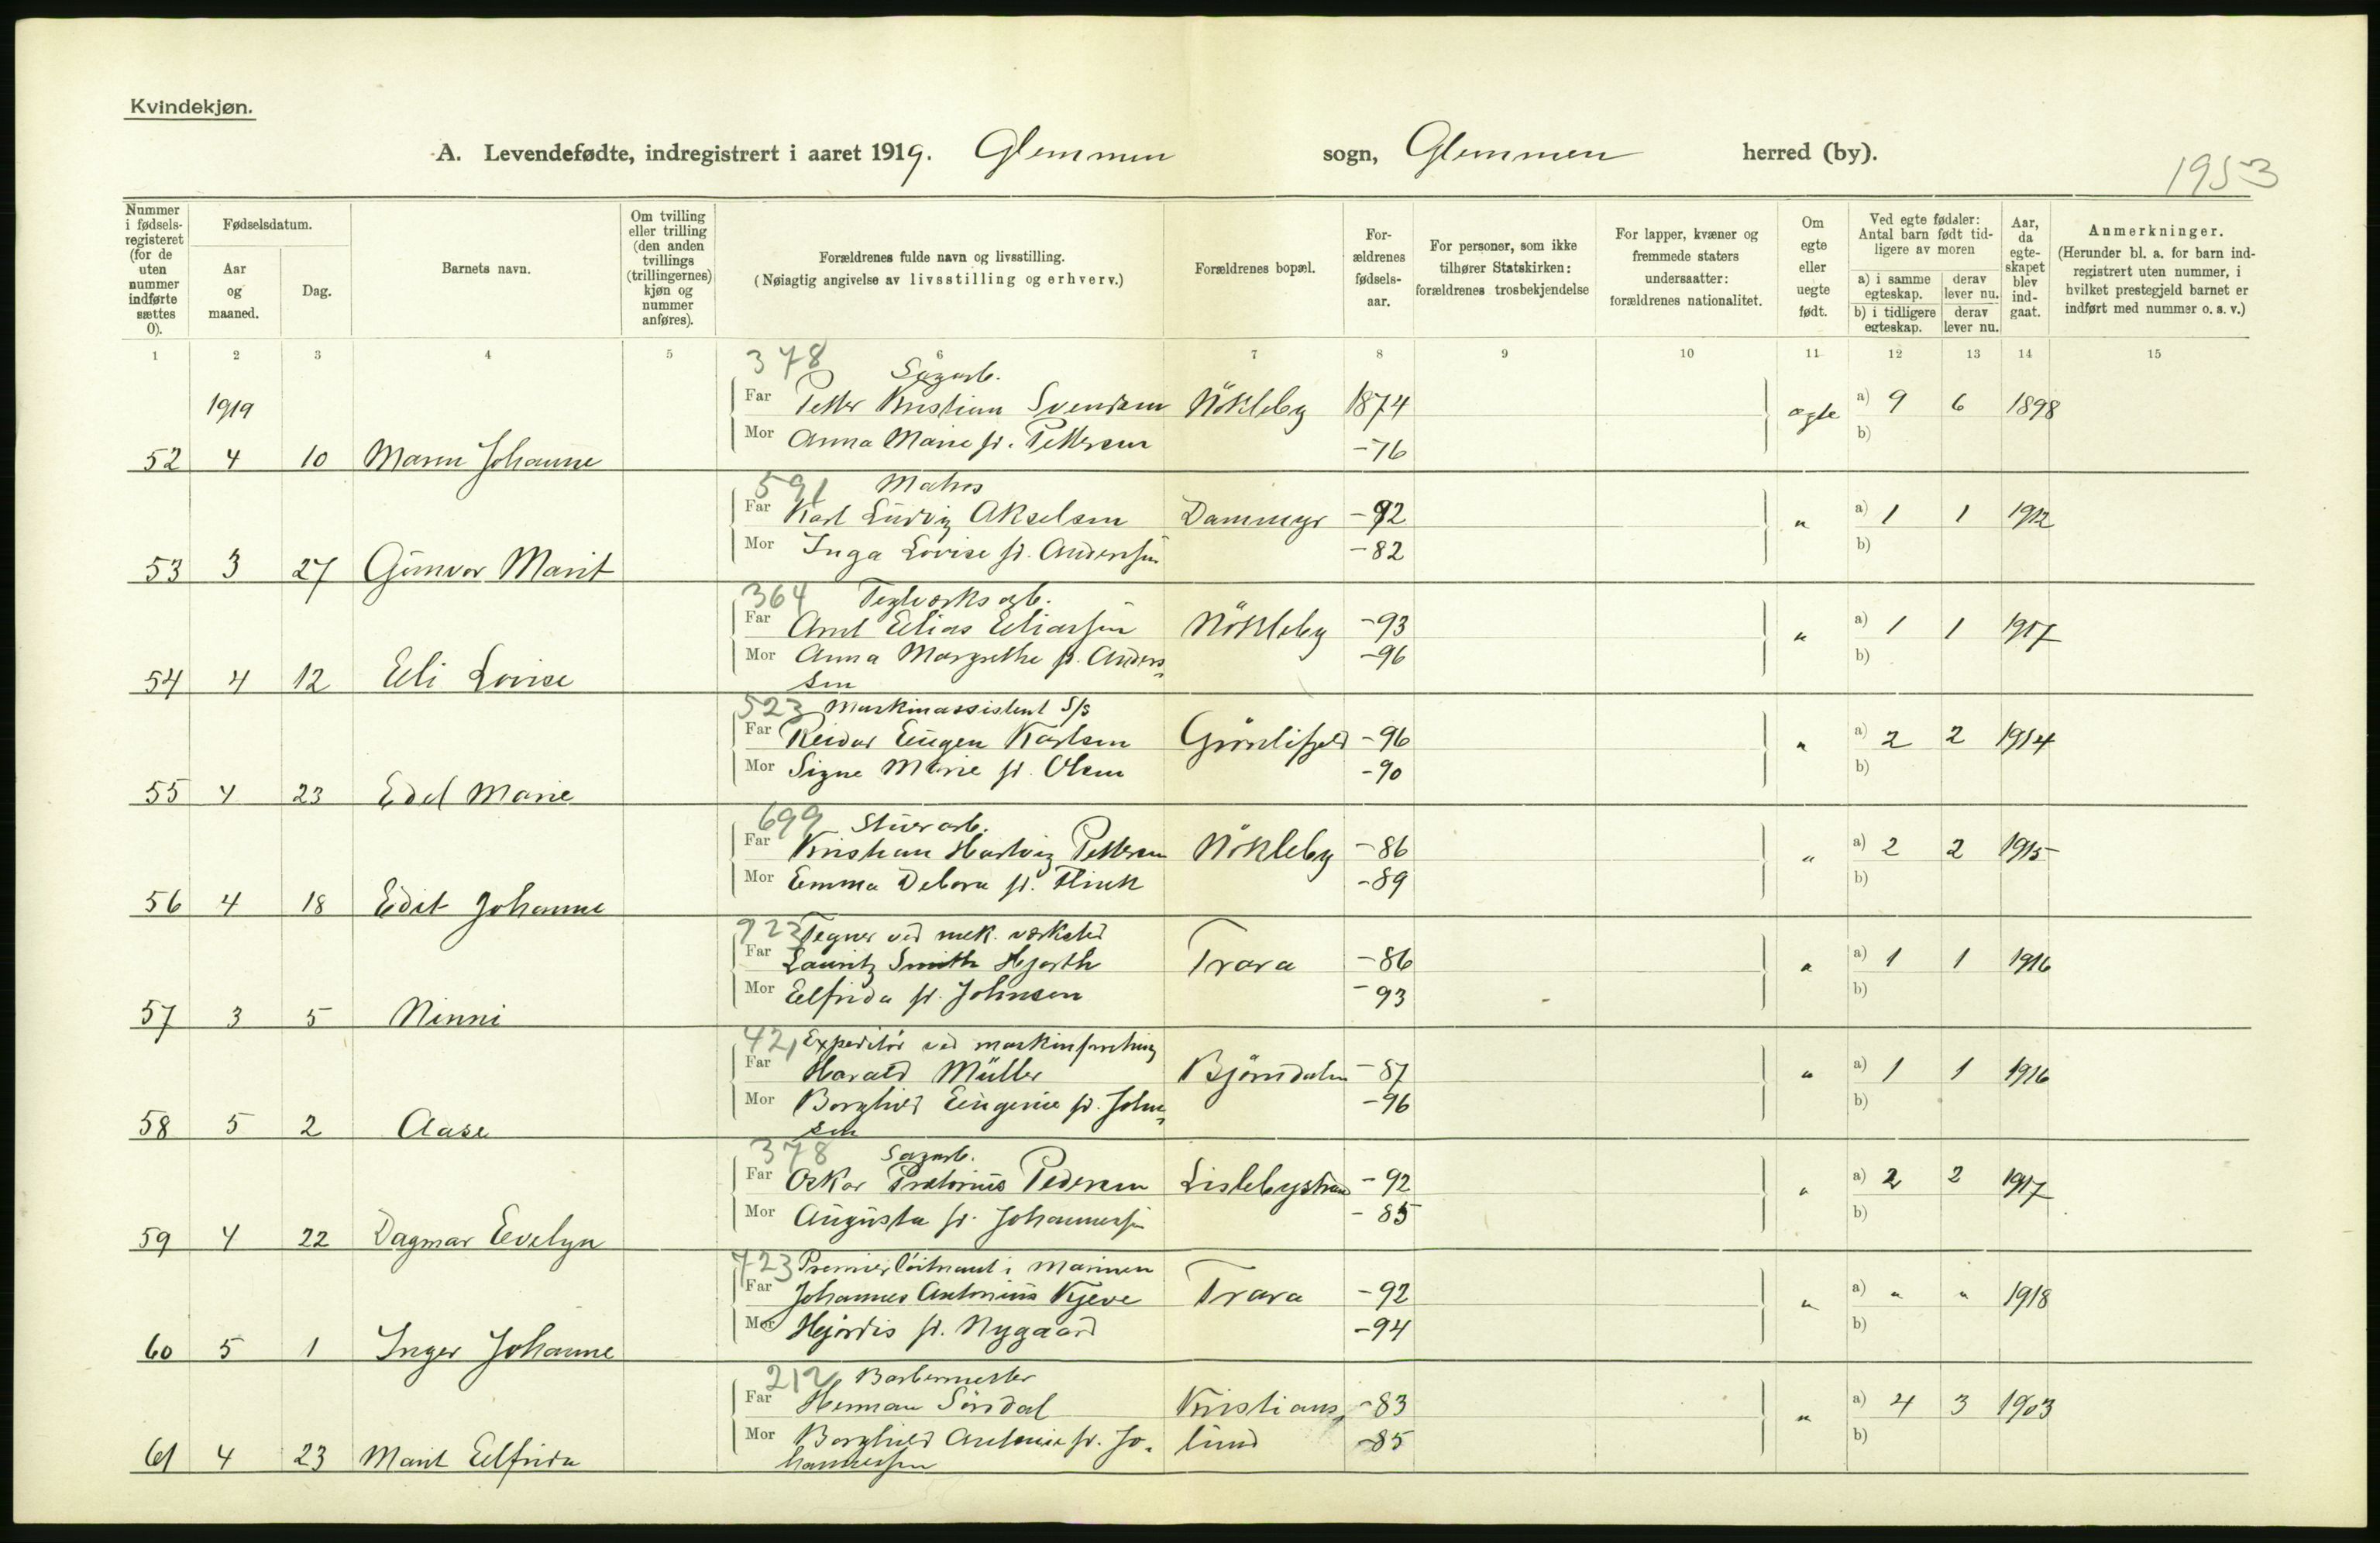 Kvindekjøn.
A. Levendefødte, indregistrert i aaret 1919. Glemmen sogn, Glemmen herred (by).
1953
Nummer i fødselsregisteret (for de uten nummer indførte sættes 0).
Fødselsdatum.
Aar og maaned.
Dag.
Barnets navn.
Om tvilling eller trilling (den anden tvillings (trillingernes) kjøn og nummer anføres).
Forældrenes fulde navn og livsstilling.
(Nøiagtig angivelse av livsstilling og erhverv.)
Forældrenes bopæl.
Forældrenes fødselsaar.
For personer, som ikke tilhører Statskirken: forældrenes trosbekjendelse
For lapper, kvæner og fremmede staters undersaatter: forældrenes nationalitet.
Om egte eller uegte født.
Ved egte fødsler: Antal barn født tidligere av moren
a) i samme egteskap. derav lever nu.
b) i tidligere egteskap. derav lever nu.
Aar, da egteskapet blev indgaat.
Anmerkninger.
(Herunder bl. a. for barn indregistrert uten nummer, i hvilket prestegjeld barnet er indført med nummer o. s. v.)
1 2 3 4 5 6 7 8 9 10 11 12 13 14 15
378 Sagarb.
1919 Far Petter Kristian Svendsen Nökleby 1874 ægte a) 9 6 1898
Mor Anna Marie f. Pettersen -76 b)
52 4 10 Maren Johanne
591 Matros
Far Karl Ludvig Akselsen Dammyr -92 " a) 1 1 1912
Mor Inga Lovise f. Andersen -82 b)
53 3 27 Gunvor Marit
364 Teglverksarb.
Far Arnt Elias Eliassen Nökleby -93 " a) 1 1 1917
Mor Anna Margrethe f. Anders= -96 b)
sen
54 4 12 Eli Lovise
523 Maskinassistent S/S
Far Reidar Eugen Karlsen Grönlifjeld -96 " a) 2 2 1914
Mor Signe Marie f. Olsen -90 b)
55 4 23 Edel Marie
699 Stuerarb.
Far Kristian Hartvig Pettersen Nökleby -86 " a) 2 2 1915
Mor Emma Debora f. Flink -89 b)
56 4 18 Edit Johanne
923 Tegner ved mek. verksted
Far Lauritz Smith Hjorth Trara -86 " a) 1 1 1916
Mor Elfrida f. Johnsen -93 b)
57 3 5 Ninni
421 Expeditör ved maskinforretning
Far Harald Müller Björndalen -87 " a) 1 1 1916
Mor Borghild Eugenie f. John= -96 b)
sen
58 5 2 Aase
378 Sagarb.
Far Oskar Pretorius Pedersen Lislebystrand -92 " a) 2 2 1917
Mor Augusta f. Johannessen -85 b)
59 4 22 Dagmar Evelyn
723 Premierlöitnant i Marinen
Far Johannes Antonius Kjeve Trara -92 " a) " " 1918
Mor Hjördis f. Nygaard -94 b)
60 5 1 Inger Johanne
212 Barbermester
Far Herman Sördal Kristians= -83 " a) 4 3 1903
Mor Borghild Antonie f. Jo= lund -85 b)
hannessen
61 4 23 Marit Elfrida